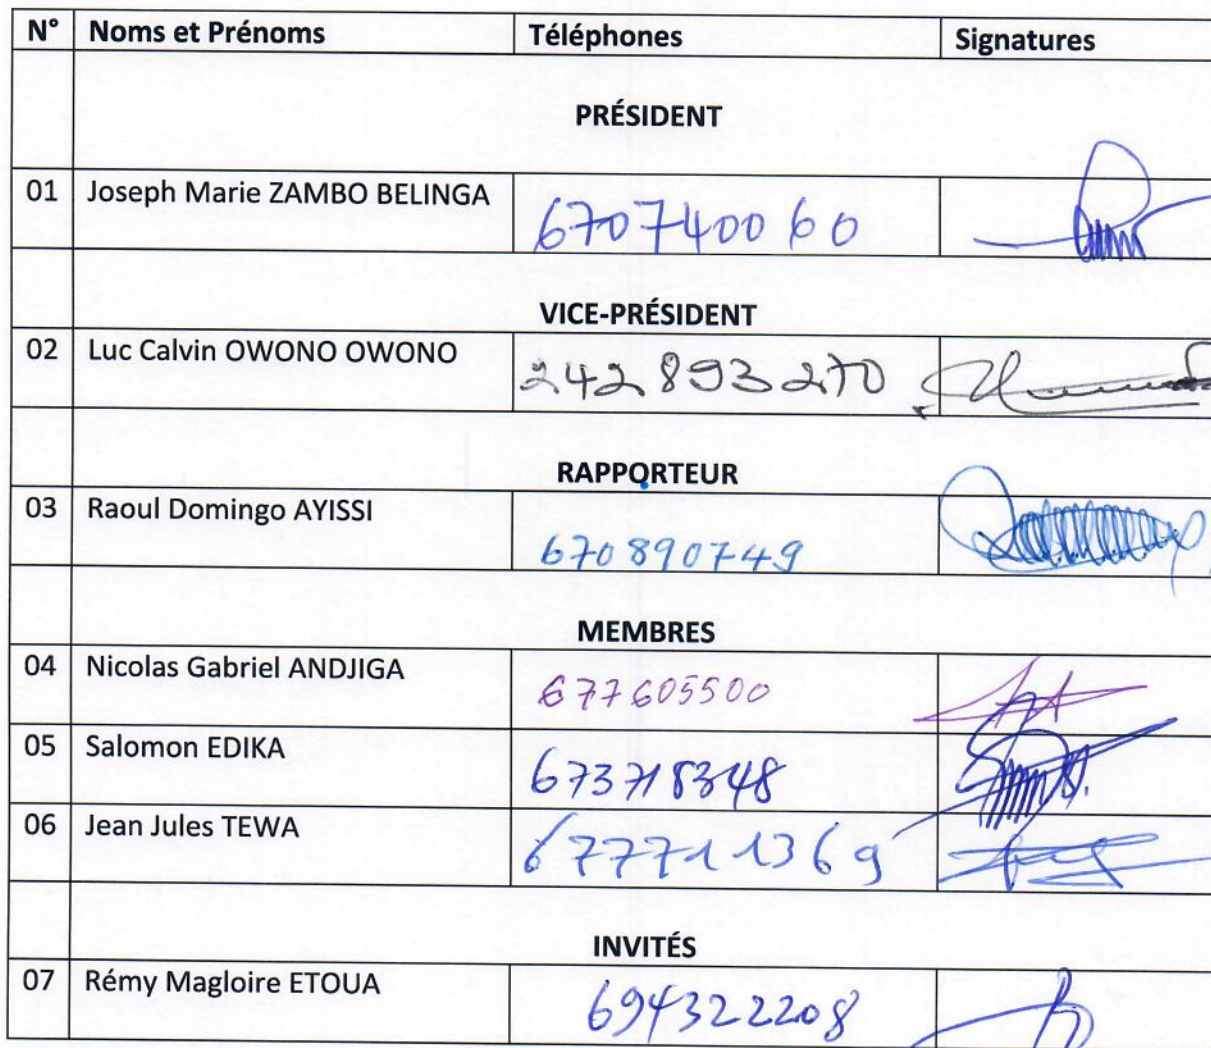 N° Noms et Prénoms Téléphones Signatures
PRÉSIDENT
01 Joseph Marie ZAMBO BELINGA 670740060
VICE-PRÉSIDENT
02 Luc Calvin OWONO OWONO 242893270
RAPPORTEUR
03 Raoul Domingo AYISSI 670890749
MEMBRES
04 Nicolas Gabriel ANDJIGA 677605500
05 Salomon EDIKA 673718348
06 Jean Jules TEWA 677711369
INVITÉS
07 Rémy Magloire ETOUA 694322208